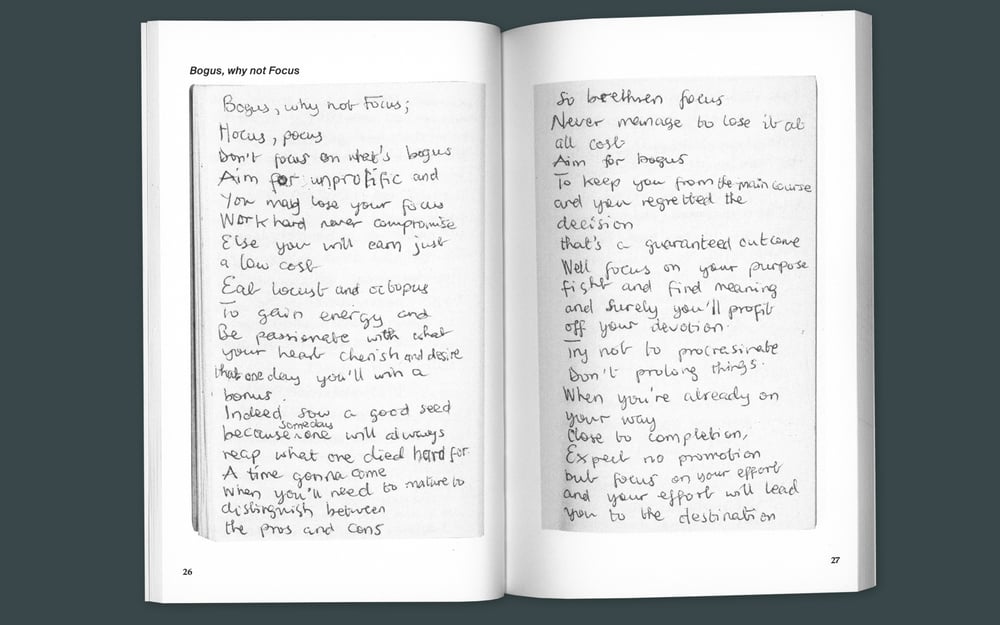 Bogus, why not Focus
Bogus, why not Focus;
Hocus, pocus
Don't focus on what's bogus
Aim for unprofific and
You may lose your focus
Work hard never compromise
Else you will earn just
a low cost
Eat locust and octopus
To gain energy and
Be passionate with what
your heart cherish and desire
that one day you'll win a
bonus.
Indeed sow a good seed
because somedays one will always
reap what one died hard for
A time gonna come
When you'll need to mature to
distinguish between
the pros and cons
26
So brethren focus
Never manage to lose it at
all cost
Aim for bogus
To keep you from the main course
and you regretted the
decision
that's a guaranteed outcome
Well focus on your purpose
fight and find meaning
and surely you'll profit
off your devotion.
Try not to procrasinate
Don't prolong things.
When you're already on
your way
Close to completion,
Expect no promotion
but focus on your effort
and your effort will lead
you to the destination
27